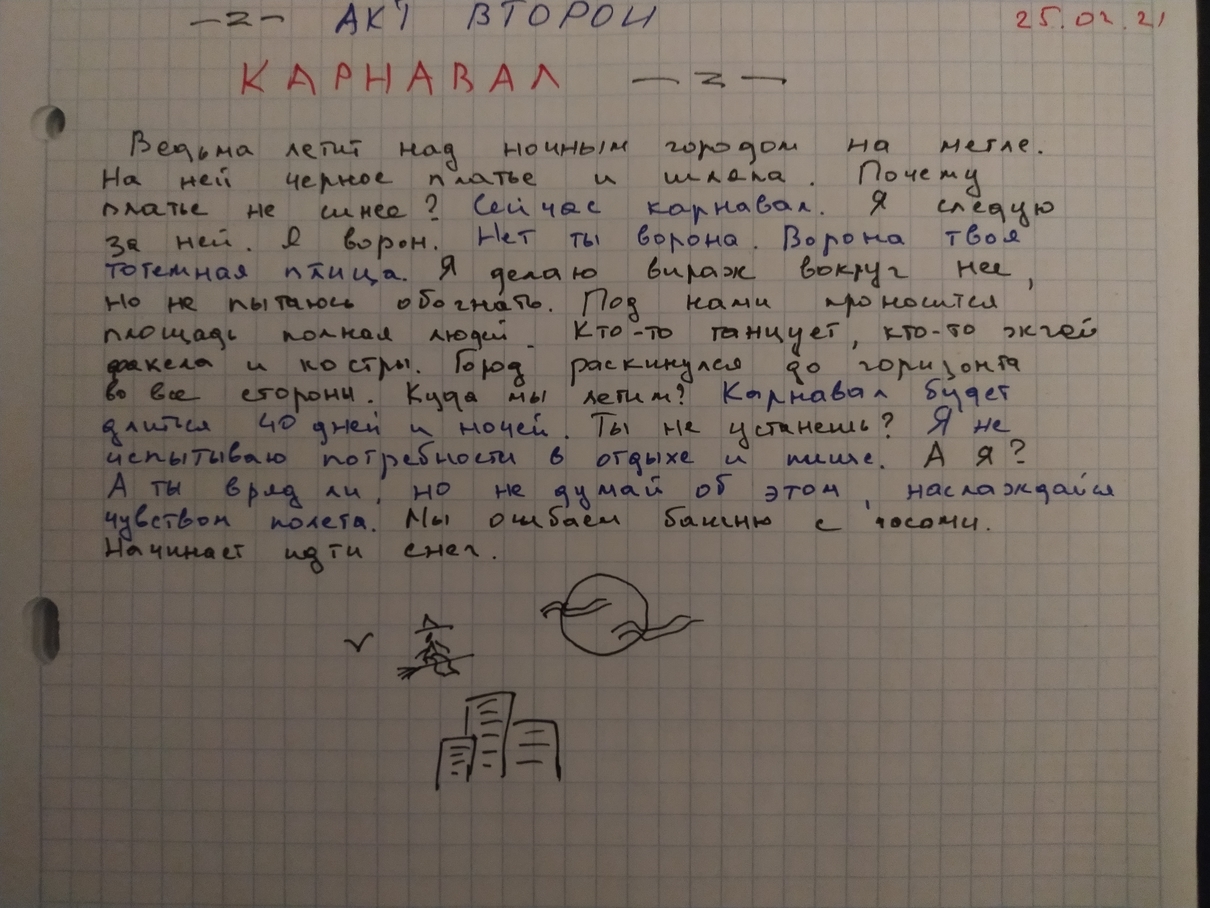 —2— АКТ ВТОРОЙ 25.02.21
КАРНАВАЛ —2—
Ведьма летит над ночным городом на метле.
На ней черное платье и шляпа. Почему
платье не синее? Сейчас карнавал. Я следую
за ней. Я ворон. Нет ты ворона. Ворона твоя
тотемная птица. Я делаю вираж вокруг нее,
но не пытаюсь обогнать. Под нами проносится
площадь полная людей. Кто-то танцует, кто-то жгет
факела и костры. Город раскинулся до горизонта
во все стороны. Куда мы летим? Карнавал будет
длится 40 дней и ночей. Ты не устанешь? Я не
испытываю потребности в отдыхе и пище. А я?
А ты вряд ли, но не думай об этом, наслаждайся
чувством полета. Мы огибаем башню с часами.
Начинает идти снег.